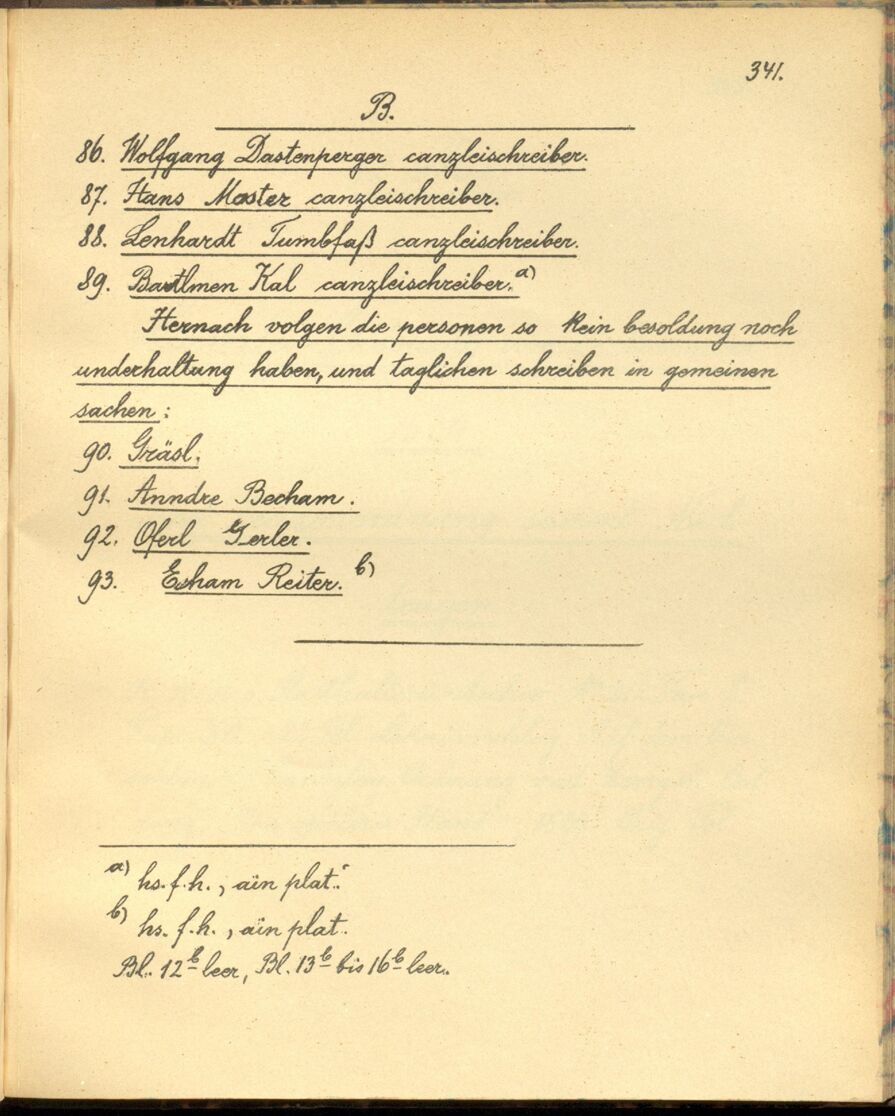 341.
B.
86. Wolfgang Dastenperger canzleischreiber.
87. Hans Moster canzleischreiber.
88. Lenhardt Tumbfaß canzleischreiber.
89. Bartlmen Kal canzleischreiber. a)
Hernach volgen die personen so kein besoldung noch
underhaltung haben, und taglichen schreiben in gemeinen
sachen:
90. Gräsl.
91. Anndre Becham.
92. Oferl Gerler.
93. Esham Reiter. b)
a) hs. f. h., ain plat.
b) hs. f. h., ain plat.
Bl. 12b leer, Bl. 13b bis 16b leer.